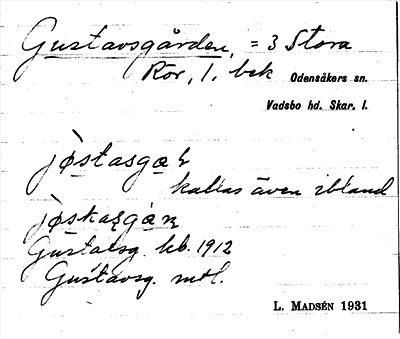 Gustavsgården, = 3 Stora
Ror, 1. bek Odensåkers sn.
Vadsbo hd. Skar. l.
jøstasgaṛ
kallas även ibland
jøskasgáṛ
Gustafsg. kb. 1912
Gustavsg. mtl.
L. MADSÉN 1931